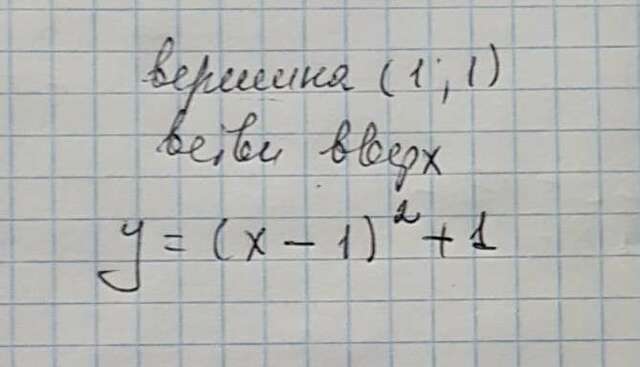 вершина (1; 1)
ветви вверх
y = (x - 1)² + 1